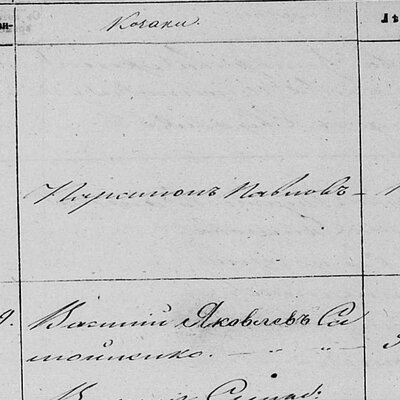 Козаки.
Парамонъ Павловъ
9. Василій Яковлевъ Са
мойленко.